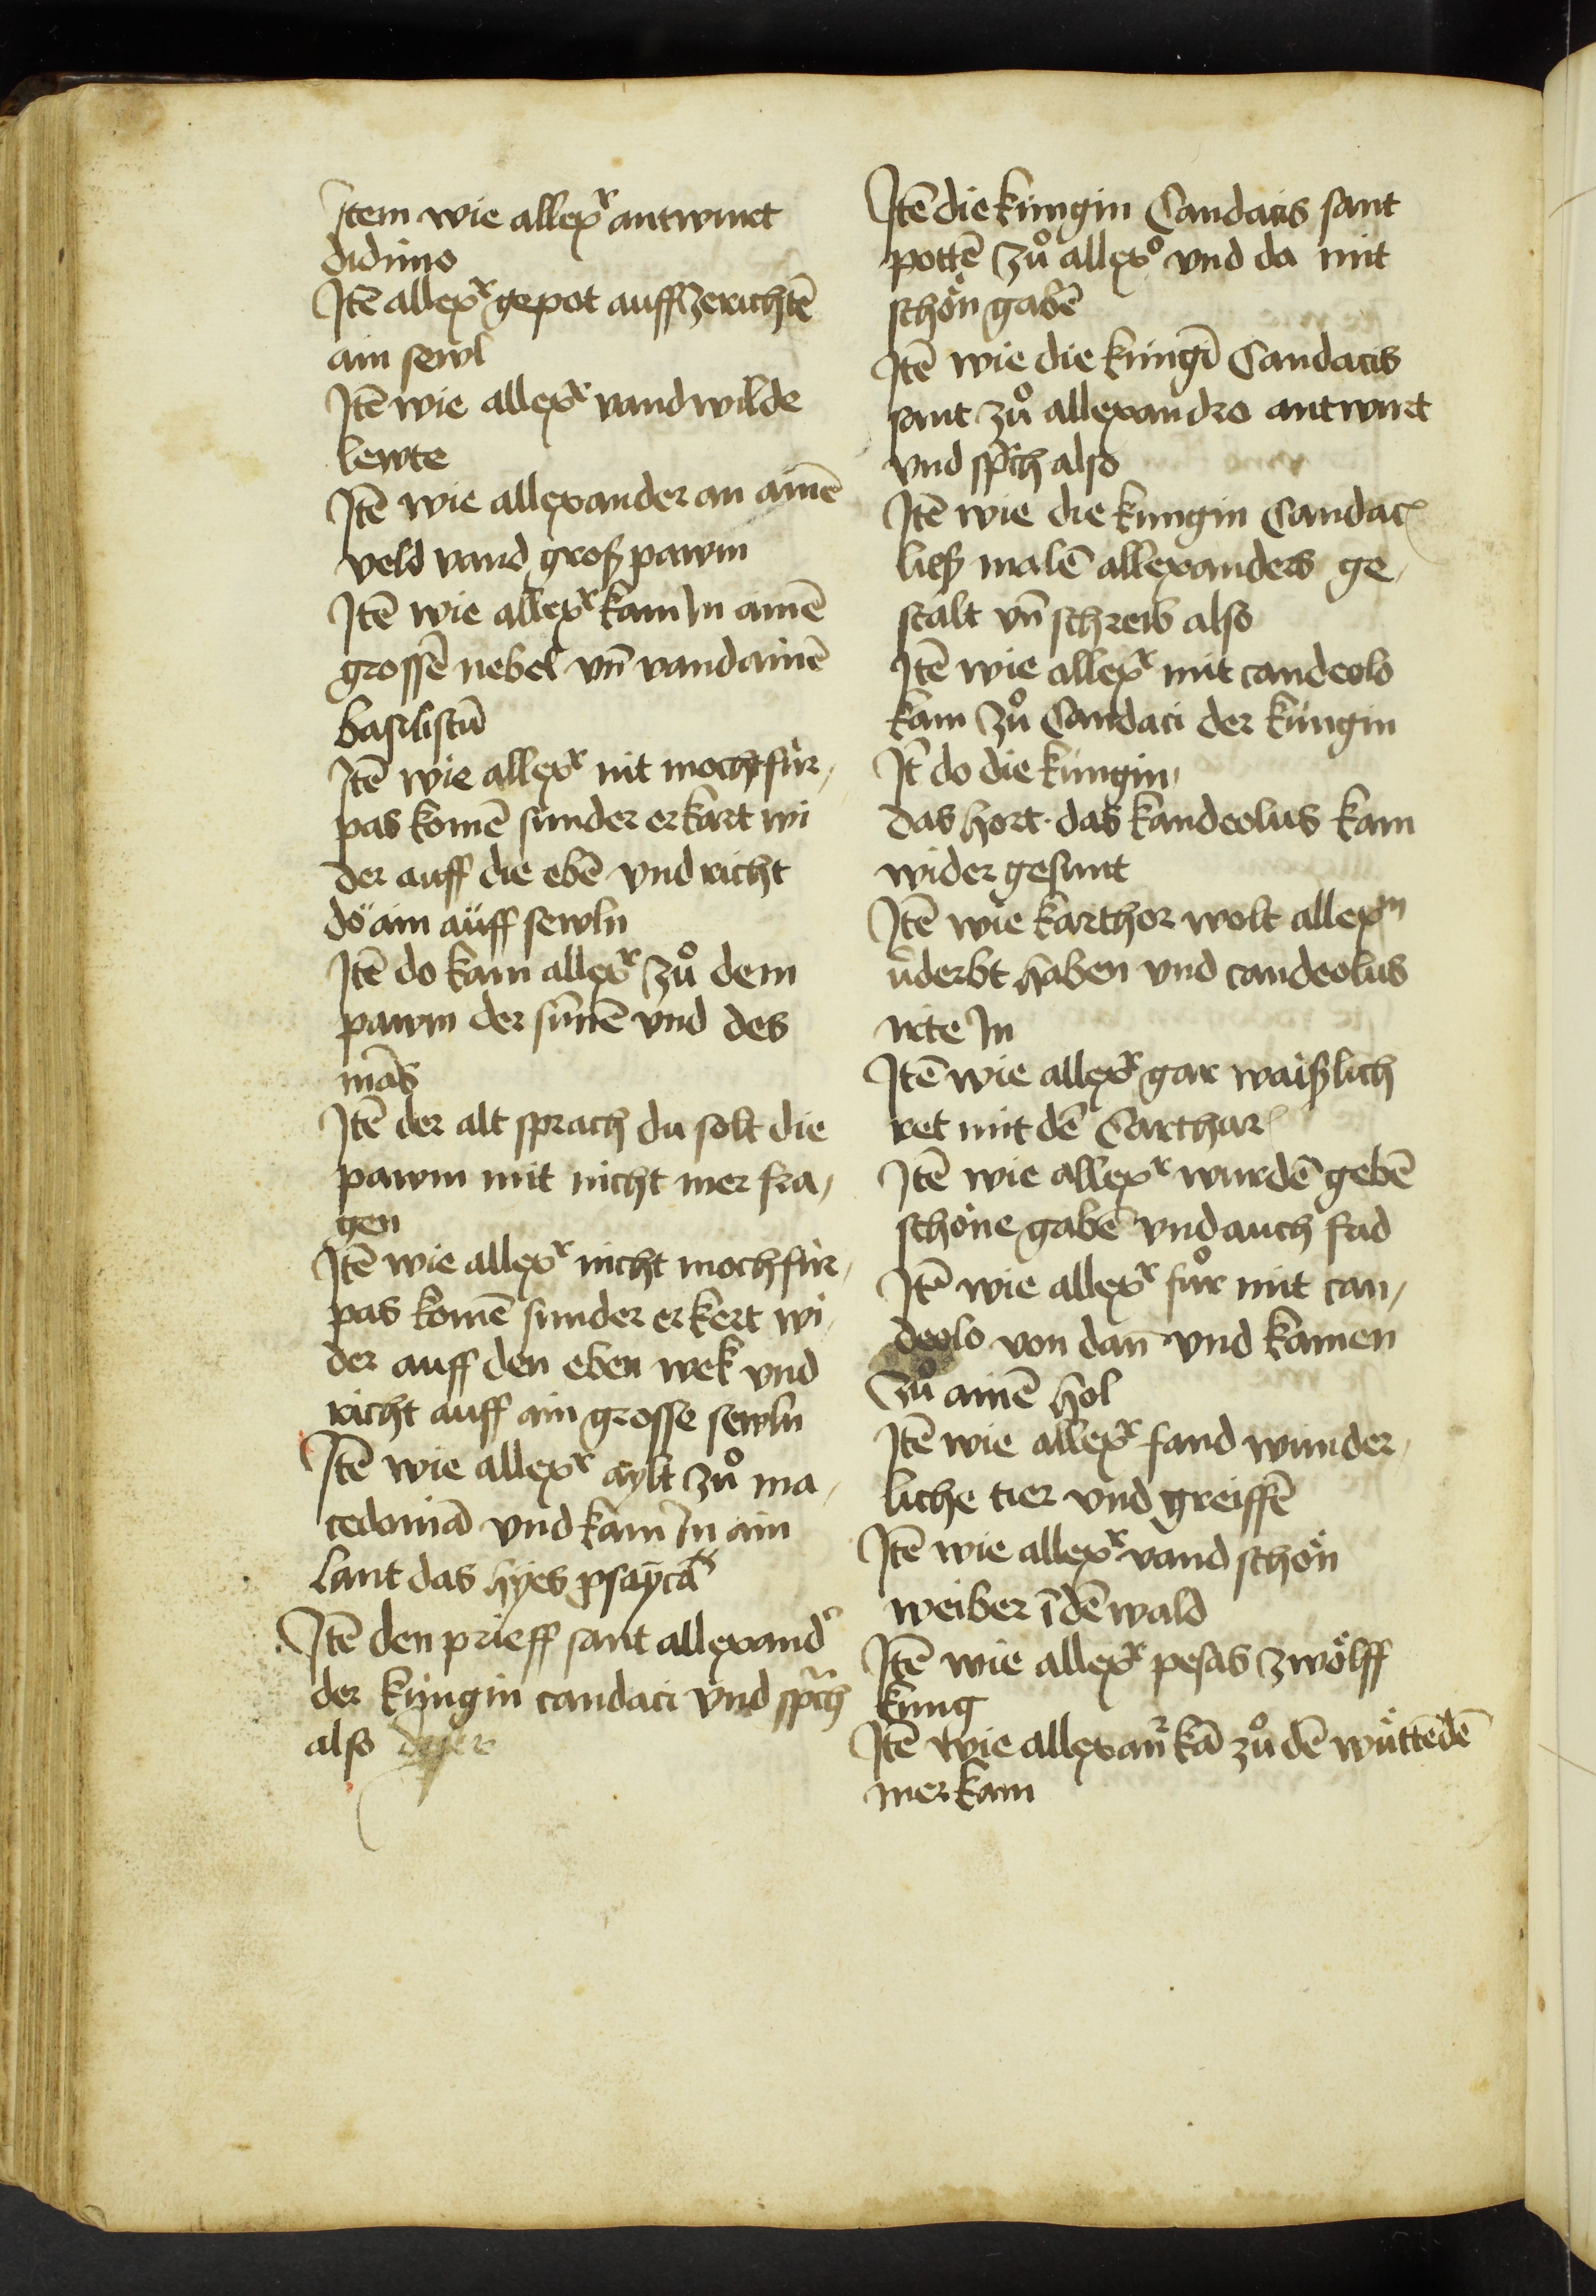 Item wie allexr antwurt
didimo
Itē allexr gepot auffzerichtē
ain sewl
Itē wie allexr vand wilde
lewte
Itē wie allexander an ainē
veld vand groß pawm
Itē wie allexr kam In ainē
grossē nebel vn̄ vand ainē
basiliscū
Itē wie allexr nit mocht für,
pas komē sunder er kart wi
der auff die ebē vnd richt
do ain auff sewln
Itē do kam allexr zů dem
pawm der sunnē vnd des
mās
Itē der alt sprach du solt die
pawm mit nicht mer fra,
gen
Itē wie allexr nicht moch für,
pas komē sunder er kert wi
der auff den eben wek vnd
richt auff ain grosse sewln
Itē wie allexr aylt zů ma,
cedoniā vnd kam In ain
lant das hyes psaycā
Itē den prieff sant allexandr
der küngin candaci vnd sprch
also
Itē die küngin Candacis sant
pottē zů allexo vnd da mit
schön gabē
Itē wie die küngī Candacis
sant zů allexandro antwurt
vnd sprch also
Itē wie die kungin Candac
ließ malē allexanders ge,
stalt vn̄ schreib also
Itē wie allexr mit candeolo
kam zů Candaci der küngin
It do die küngin
das hort das kandeolus kam
wider gesunt
Itē wie karthor wolt allexm
v̄derbt haben vnd candeolus
 In
Itē wie allexr gar waißlich
ret mit dē Carthar
Itē wie allexr wurdē gebē
schöne gabē vnd auch fad
Itē wie allexr fůr mit can,
deolo von dan vnd kamen
zů ainē hol
Itē wie allexr fand wunder,
liche tier vnd greiffē
Itē wie allexr vand schön
weiber ī dē wald
Itē wie allexr pesas zwölff
kung
Itē wie allexanr kā zů dē wüttēdē
mer kam